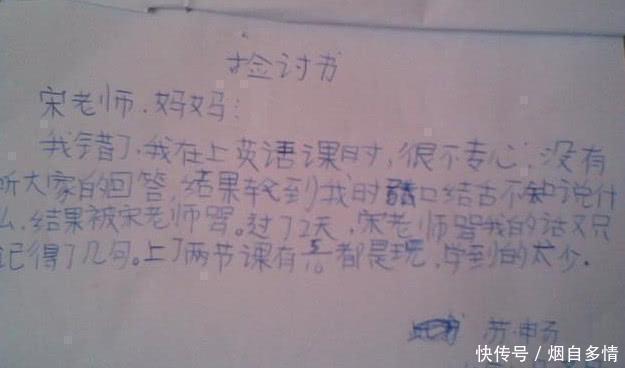 捡讨书
宋老师、妈妈：
我错了，我在上英语课时，很不专心，没有
听大家的回答，结果轮到我时 口结舌不知说什
么，结果被宋老师骂。过了2天，宋老师骂我的话又只
记得了几句。上了两节课有5/10都是玩，学到的太少。
苏畅
快传号／烟自多情